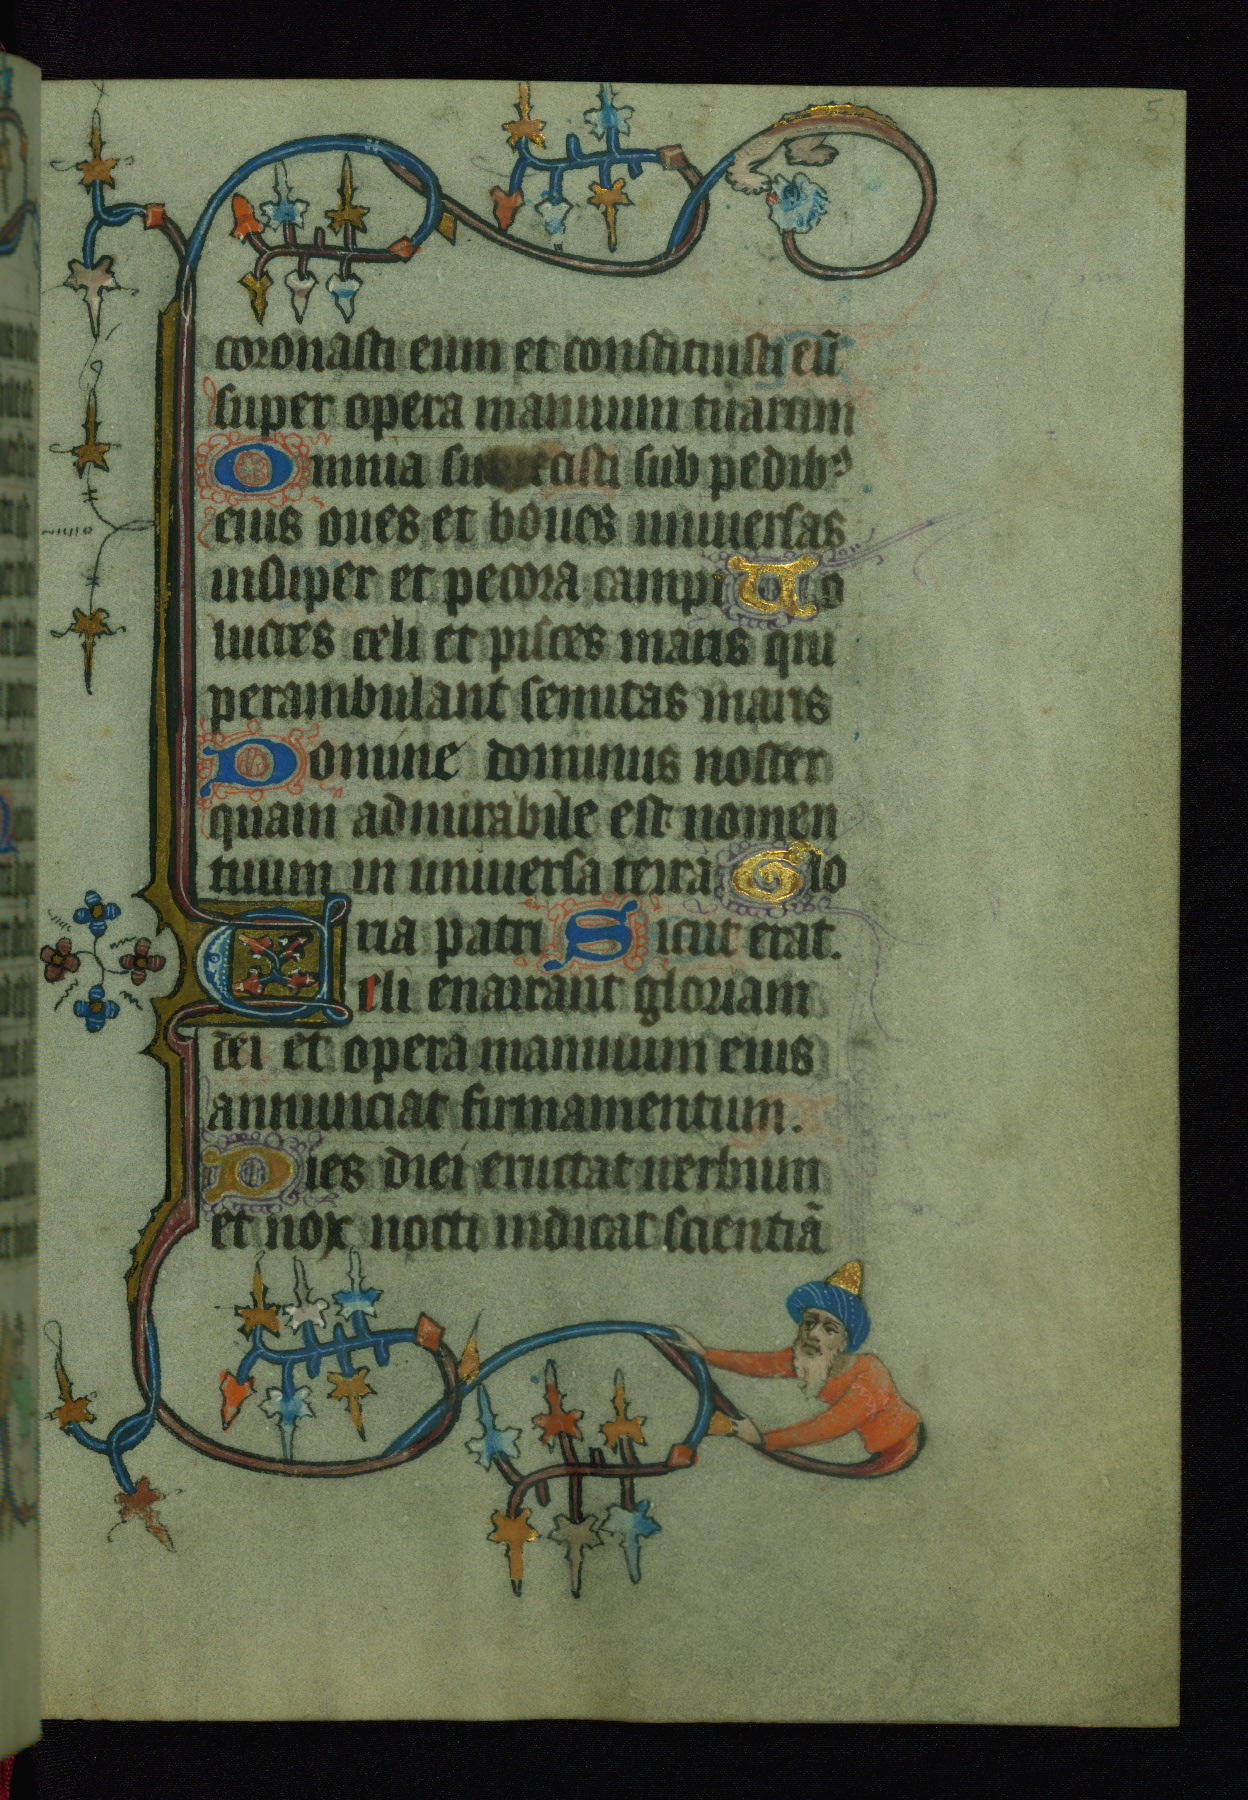 coronasti eum et constituisti eũ
super opera manuum tuarum
Omnia subiecisti sub pedibꝰ
eius oues et boues uniuersas
insuper et pecora campi Uo
lucres celi et pisces maris qui
perambulant semitas maris
Domine dominus noster
quam admirabile est nomen
tuum in uniuersa terra Glo
ria patri Sicut erat.
Celi enarrant gloriam
dei et opera manuum eius
annunciat firmamentum.
Dies diei eructat uerbum
et nox nocti indicat scientiã